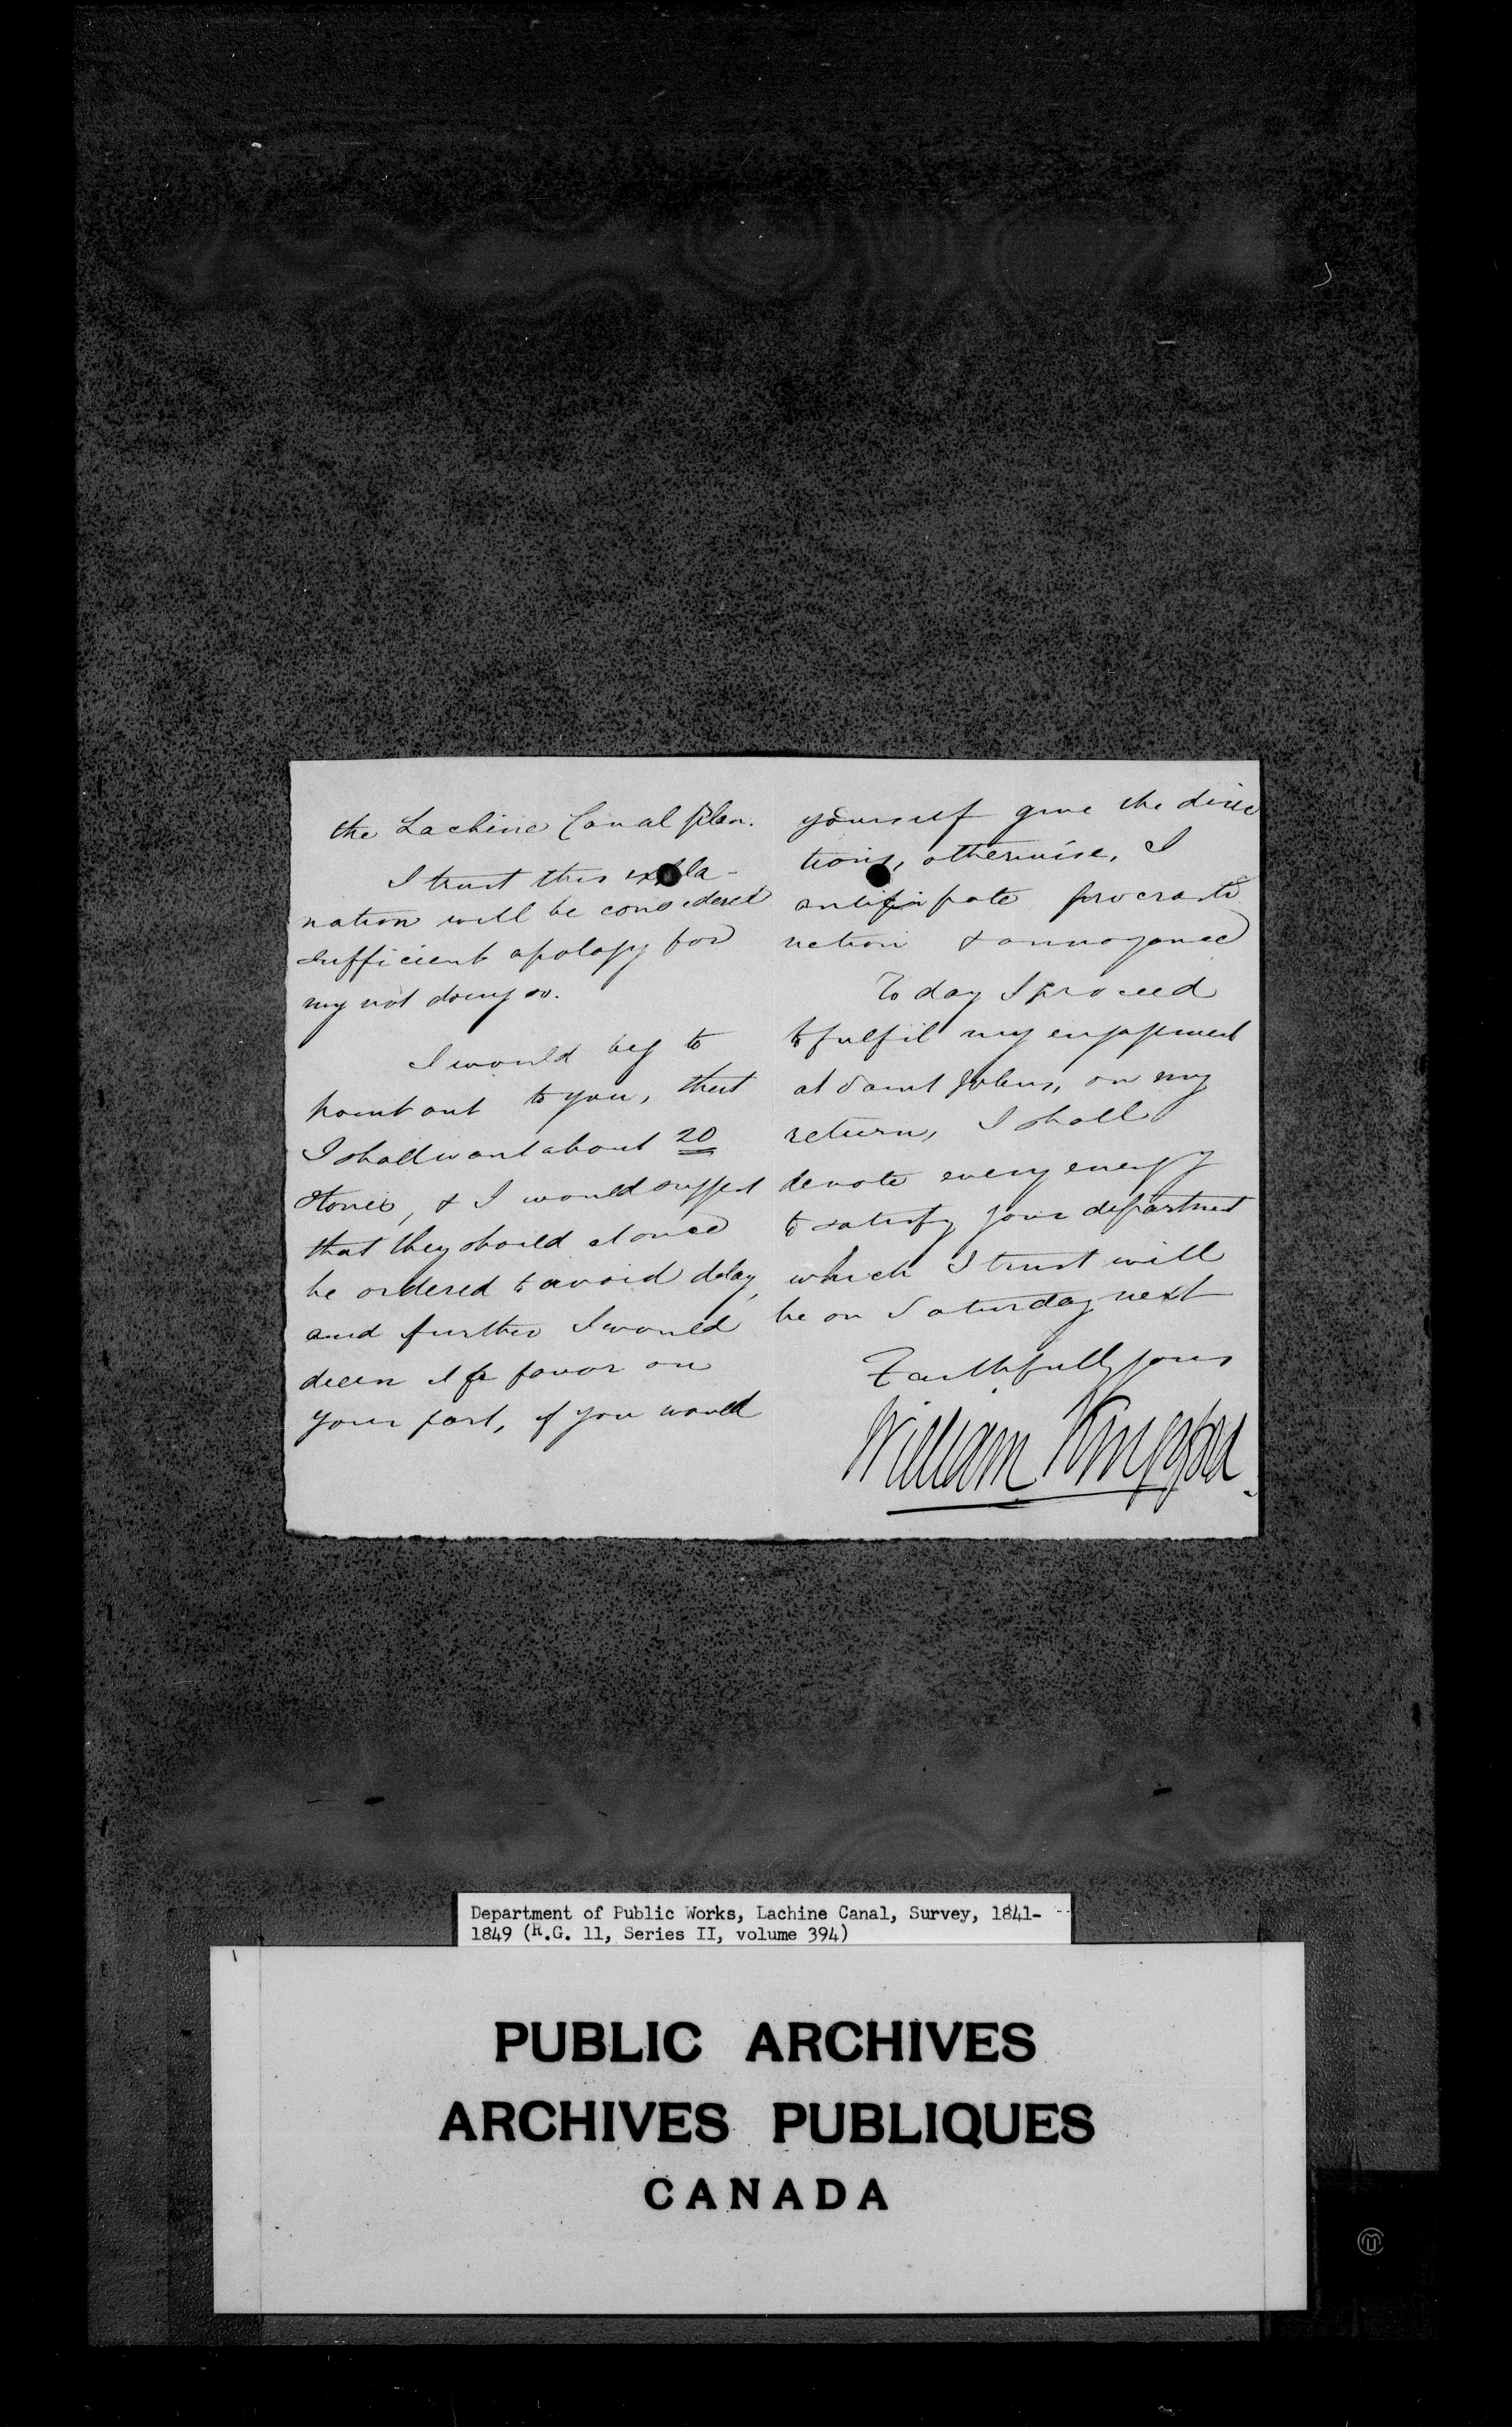 the Lachine Canal plan.
I trust this expla-
nation will be considered
sufficient apology for
my not doing so.
I would beg to
point out to you, that
I shall want about 20
stones, & I would suggest
that they should at once
be ordered to avoid delay,
and further I would
deem it a favor on
your part, if you would
yourself give the direc
tions, otherwise, I
anticipate procrasti
nation & annoyance
To day I proceed
to fulfil my engagement
at Saint Johns, on my
return, I shall
devote every energy
to satisfy your department
which I trust will
be on Saturday next
Faithfully yours
William Kingsford.
Department of Public Works, Lachine Canal, Survey, 1841-
1849 (R.G. 11, Series II, volume 394)
PUBLIC ARCHIVES
ARCHIVES PUBLIQUES
CANADA